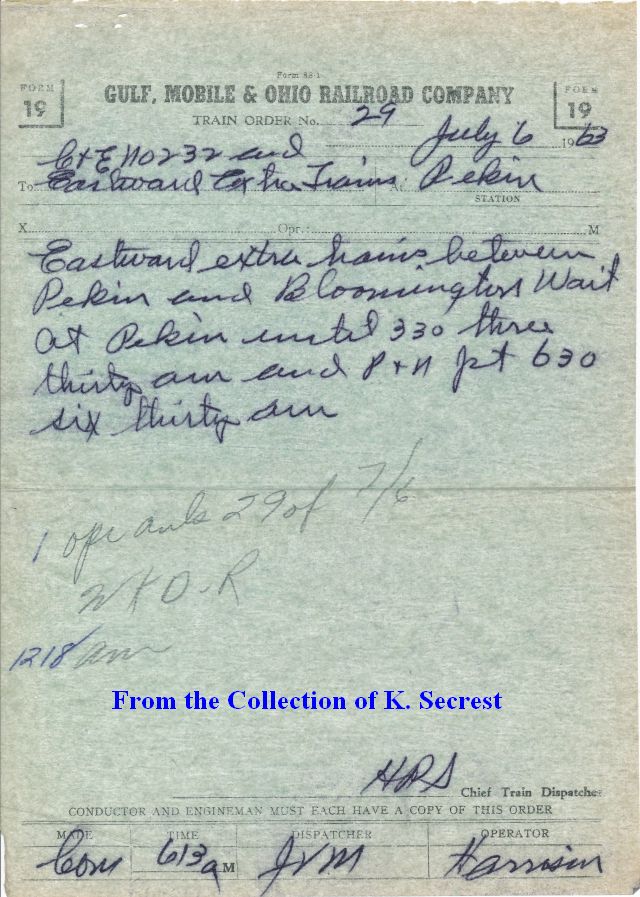 Form 88-1
FORM 19
GULF, MOBILE & OHIO RAILROAD COMPANY
FORM 19
TRAIN ORDER No. 29
July 6 1963
C+E No 232 and
To Eastward Extra Trains At Pekin
STATION
X Opr.: M
Eastward extra trains between
Pekin and Bloomington Wait
at Pekin until 330 three
thirty am and P+N Jct 630
six thirty am
1 opr 29 of 7/6
1218 am
From the Collection of K. Secrest
HRS Chief Train Dispatcher
CONDUCTOR AND ENGINEMAN MUST EACH HAVE A COPY OF THIS ORDER
MADE TIME DISPATCHER OPERATOR
Com 613 a M JVM Harrison